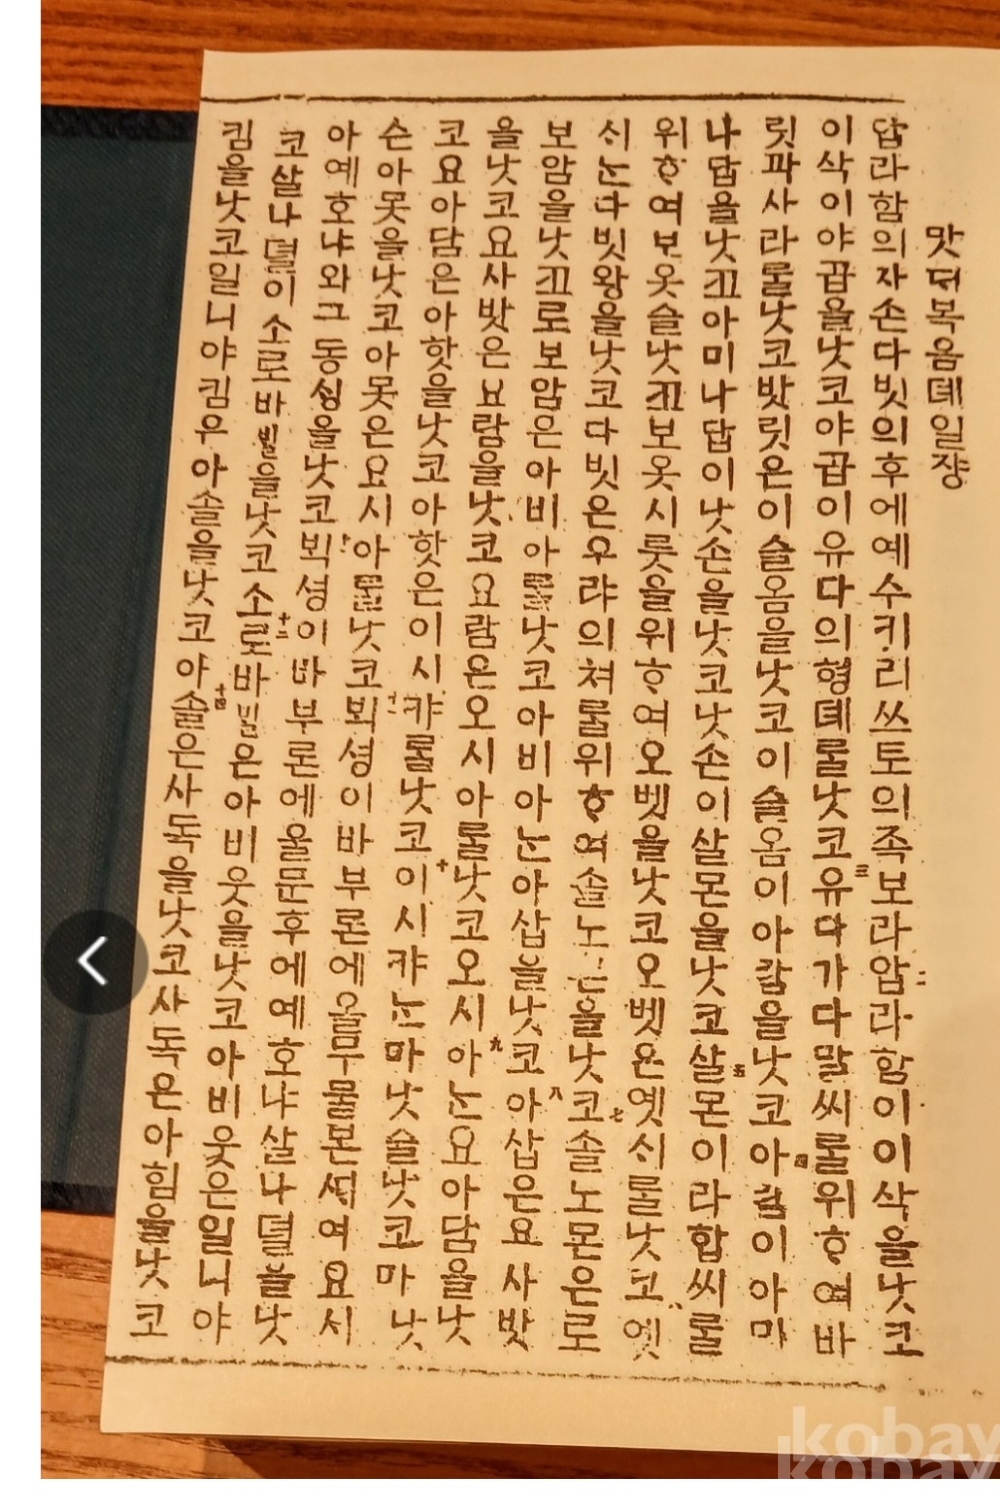 맛뎌복음뎨일쟝
답라함의자손다빗의후에예수키리쓰토의족보라二압라함이이삭을낫코
이삭이야곱을낫코야곱이유다의형뎨룰낫코三유다가다말씨룰위ᄒᆞ여바
릿과사라룰낫코밧릿은이슬옴을낫코이슬옴이아람을낫코아四람이아마
나답을낫고아미나답이낫손을낫코낫손이살몬을낫코살五몬이라합씨룰
위ᄒᆞ여보옷슬낫고보옷시룻을위ᄒᆞ여오벳을낫코오벳은옛시룰낫코옛
시는다빗왕을낫코다빗은우랴의쳐룰위ᄒᆞ여솔노몬을낫코七솔노몬은로
보암을낫고로보암은아비아룰낫코아비아는아삽을낫코아八삽은요사밧
을낫코요사밧은요람을낫코요람은오시아룰낫코오시九아는요아담을낫
코요아담은아핫을낫코아핫은이시캬룰낫코이十시캬는마낫슬낫코마낫
슨아못을낫코아못은요시아룰낫코뵉셩이바부론에올무물본셔여요시
아예호냐와그동싱을낫코뵉셩이바부론에올문후에예호냐살나뎔을낫
코살나뎔이소로바빌을낫코소로바빌은아비웃을낫코아비웃은일니야
킴을낫코일니야킴우아솔을낫코아十四솔은사독을낫코사독은아힘을낫코
kobay
kobay